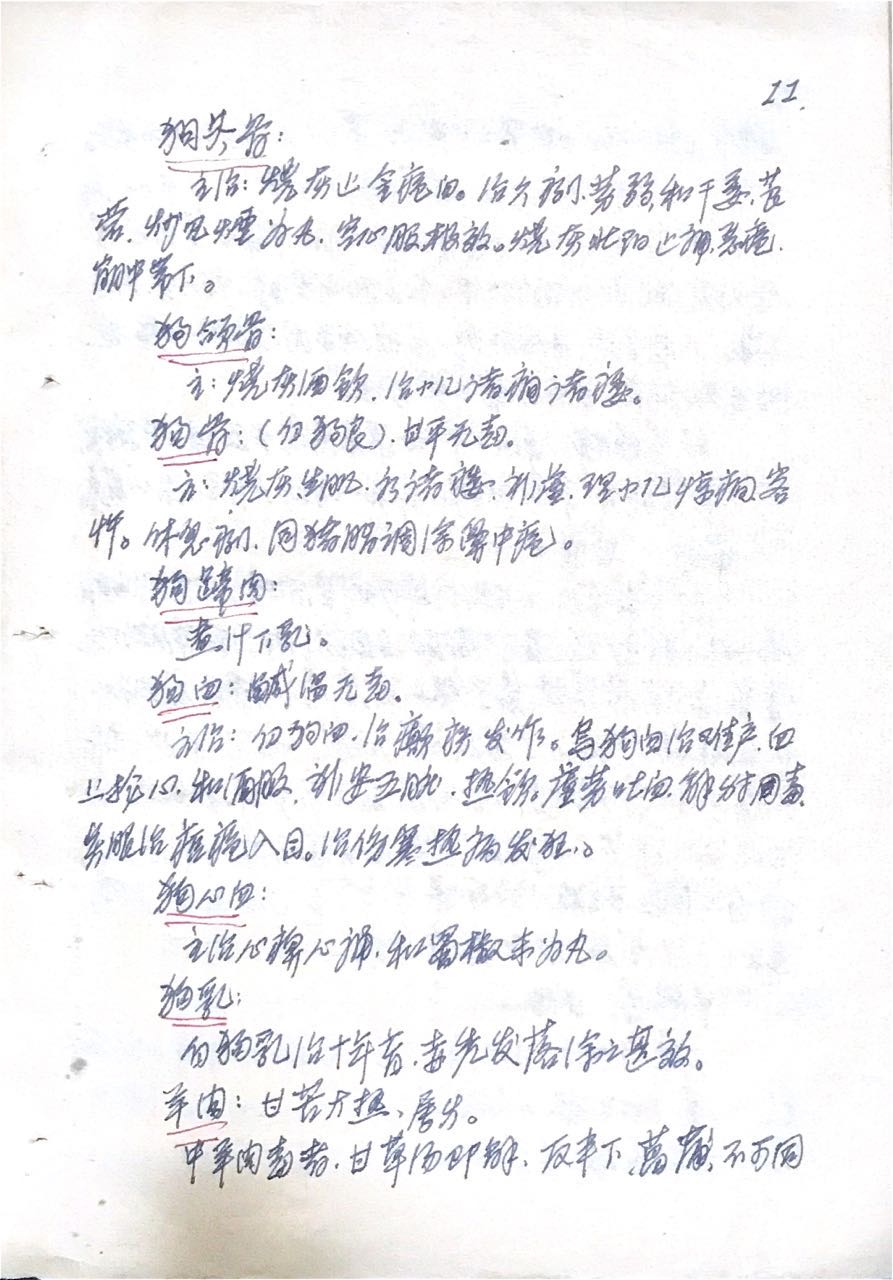 11.
狗头骨：
主治：烧灰止金疮血。治久痢、劳弱，和干姜、茛
菪，炒见烟为丸，空心服极效。烧灰壮阳止痢，恶疮，
崩中带下。
狗颔骨：
主：烧灰酒饮，治小儿诸痫诸瘘。
狗骨：（白狗良）、甘平无毒。
主：烧灰生肌，疗诸瘘、补虚，理小儿惊痫客
忤。休息痢、同猪脂调涂鼻中疮。
狗蹄肉：
煮汁下乳。
狗血：鹹温无毒。
主治：白狗血，治癫疾发作。乌狗血治难产，血
上抢心，和酒服，补安五脏，热饮，虚劳吐血，解射罔毒，
多服治痘疮入目。治伤寒热病发狂。
狗心血：
主治心痹心痛，和蜀椒末为丸。
狗乳：
白狗乳治十年盲，赤秃发落涂之甚效。
羊肉：甘苦大热，属火。
中羊肉毒者，甘草汤即解，反半下，菖蒲，不可同